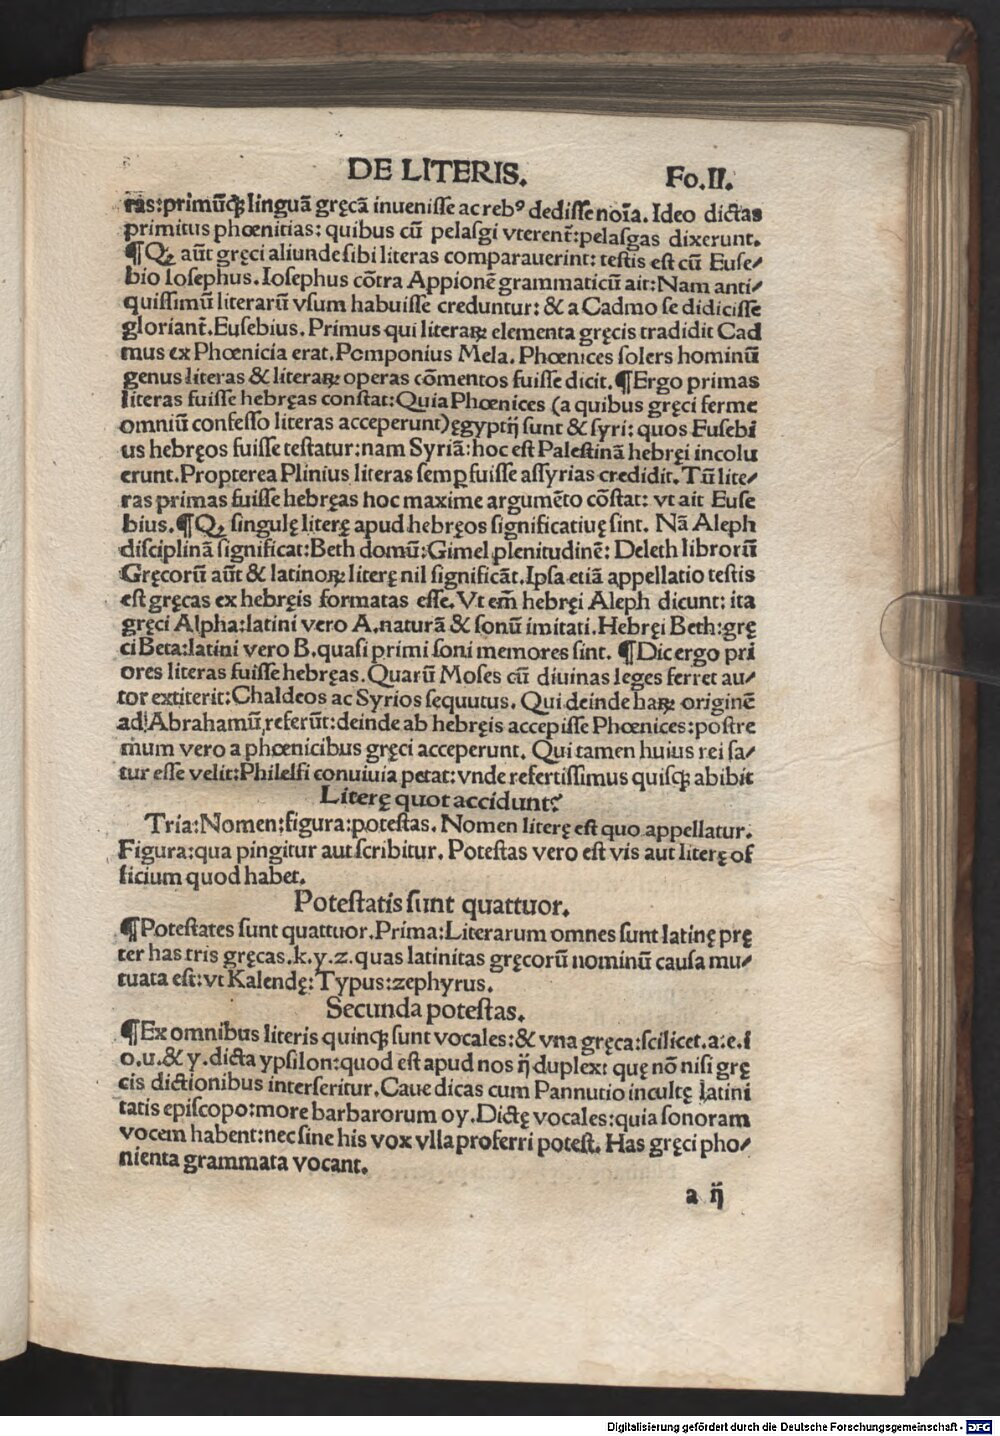 DE LITERIS. Fo.II.
ras:primūq̃ linguā gręcā inuenisse ac rebꝰ dedisse noīa. Ideo dictas
primitus phœnitias: quibus cū pelasgi vterent̃:pelasgas dixerunt.
¶Qꝫ aūt gręci aliunde sibi literas comparauerint: testis est cū Euse⸗
bio Iosephus. Iosephus cōtra Appionē grammaticū ait: Nam anti⸗
quissimū literarū vsum habuisse creduntur: & a Cadmo se didicisse
gloriant̃. Eusebius. Primus qui literaꝝ elementa gręcis tradidit Cad
mus ex Phœnicia erat. Pomponius Mela. Phœnices solers hominū
genus literas & literaꝝ operas cōmentos fuisse dicit. ¶Ergo primas
literas fuisse hebręas constat: Quia Phœnices (a quibus gręci ferme
omniū confesso literas acceperunt) ęgyptij sunt & syri: quos Eusebi
us hebręos fuisse testatur: nam Syriā: hoc est Palestinā hebręi incolu
erunt. Propterea Plinius literas semꝑ fuisse assyrias credidit. Tū lite⸗
ras primas fuisse hebręas hoc maxime argumēto cōstat: vt ait Euse
bius. ¶Qꝫ singulę literę apud hebręos significatiuę sint. Nā Aleph
disciplinā significat: Beth domū: Gimel plenitudinē: Deleth librorū
Gręcorū aūt & latinoꝝ literę nil significāt. Ipsa etiā appellatio testis
est gręcas ex hebręis formatas esse. Vt em̄ hebręi Aleph dicunt: ita
gręci Alpha: latini vero A. naturā & sonū imitati. Hebręi Beth: grę
ci Beta: latini vero B. quasi primi soni memores sint. ¶Dic ergo pri
ores literas fuisse hebręas. Quarū Moses cū diuinas leges ferret au⸗
tor extiterit: Chaldeos ac Syrios sequutus. Qui deinde haꝝ originē
ad Abrahamū referūt: deinde ab hebręis accepisse Phœnices: postre
mum vero a phœnicibus gręci acceperunt. Qui tamen huius rei sa⸗
tur esse velit: Philelfi conuiuia petat: vnde refertissimus quisq̃ abibit
Literę quot accidunt?
Tria: Nomen: figura: potestas. Nomen literę est quo appellatur.
Figura: qua pingitur aut scribitur. Potestas vero est vis aut literę of
ficium quod habet.
Potestatis sunt quattuor.
¶Potestates sunt quattuor. Prima: Literarum omnes sunt latinę prę
ter has tris gręcas. k. y. z. quas latinitas gręcorū nominū causa mu⸗
tuata est: vt Kalendę: Typus: zephyrus.
Secunda potestas.
¶Ex omnibus literis quinq̃ sunt vocales: & vna gręca: scilicet. a: e. i
o. u. & y. dicta ypsilon: quod est apud nos ij duplex: quę nō nisi grę
cis dictionibus interseritur. Caue dicas cum Pannutio incultę latini
tatis episcopo: more barbarorum oy. Dictę vocales: quia sonoram
vocem habent: nec sine his vox vlla proferri potest. Has gręci pho⸗
nienta grammata vocant.
a ij
Digitalisierung gefördert durch die Deutsche Forschungsgemeinschaft - DFG